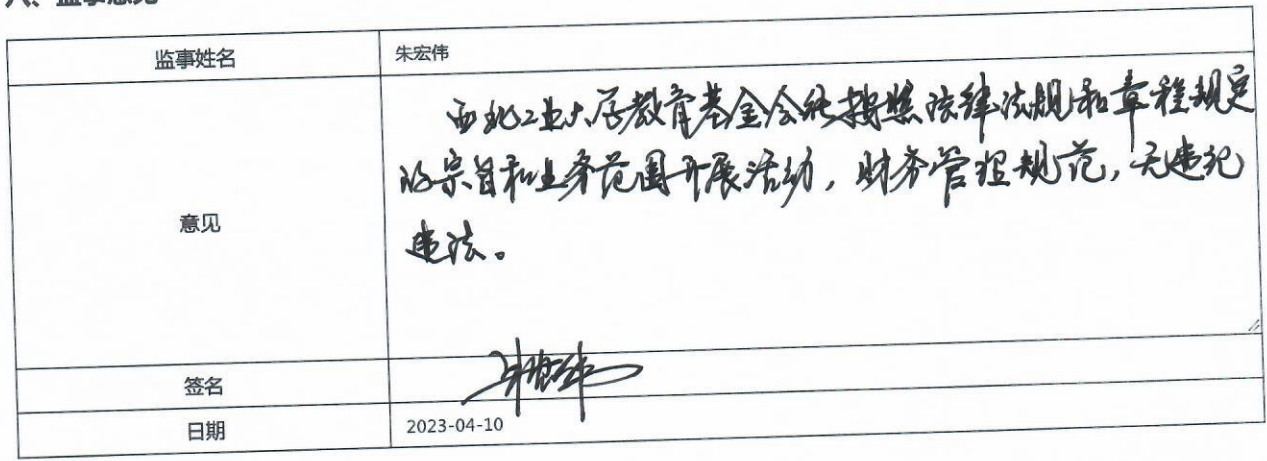 八、监事意见
监事姓名
朱宏伟
意见
西北工业大学教育基金会能按照法律法规和章程规定
的宗旨和业务范围开展活动，财务管理规范，无违纪
违法。
签名
朱宏伟
日期
2023-04-10